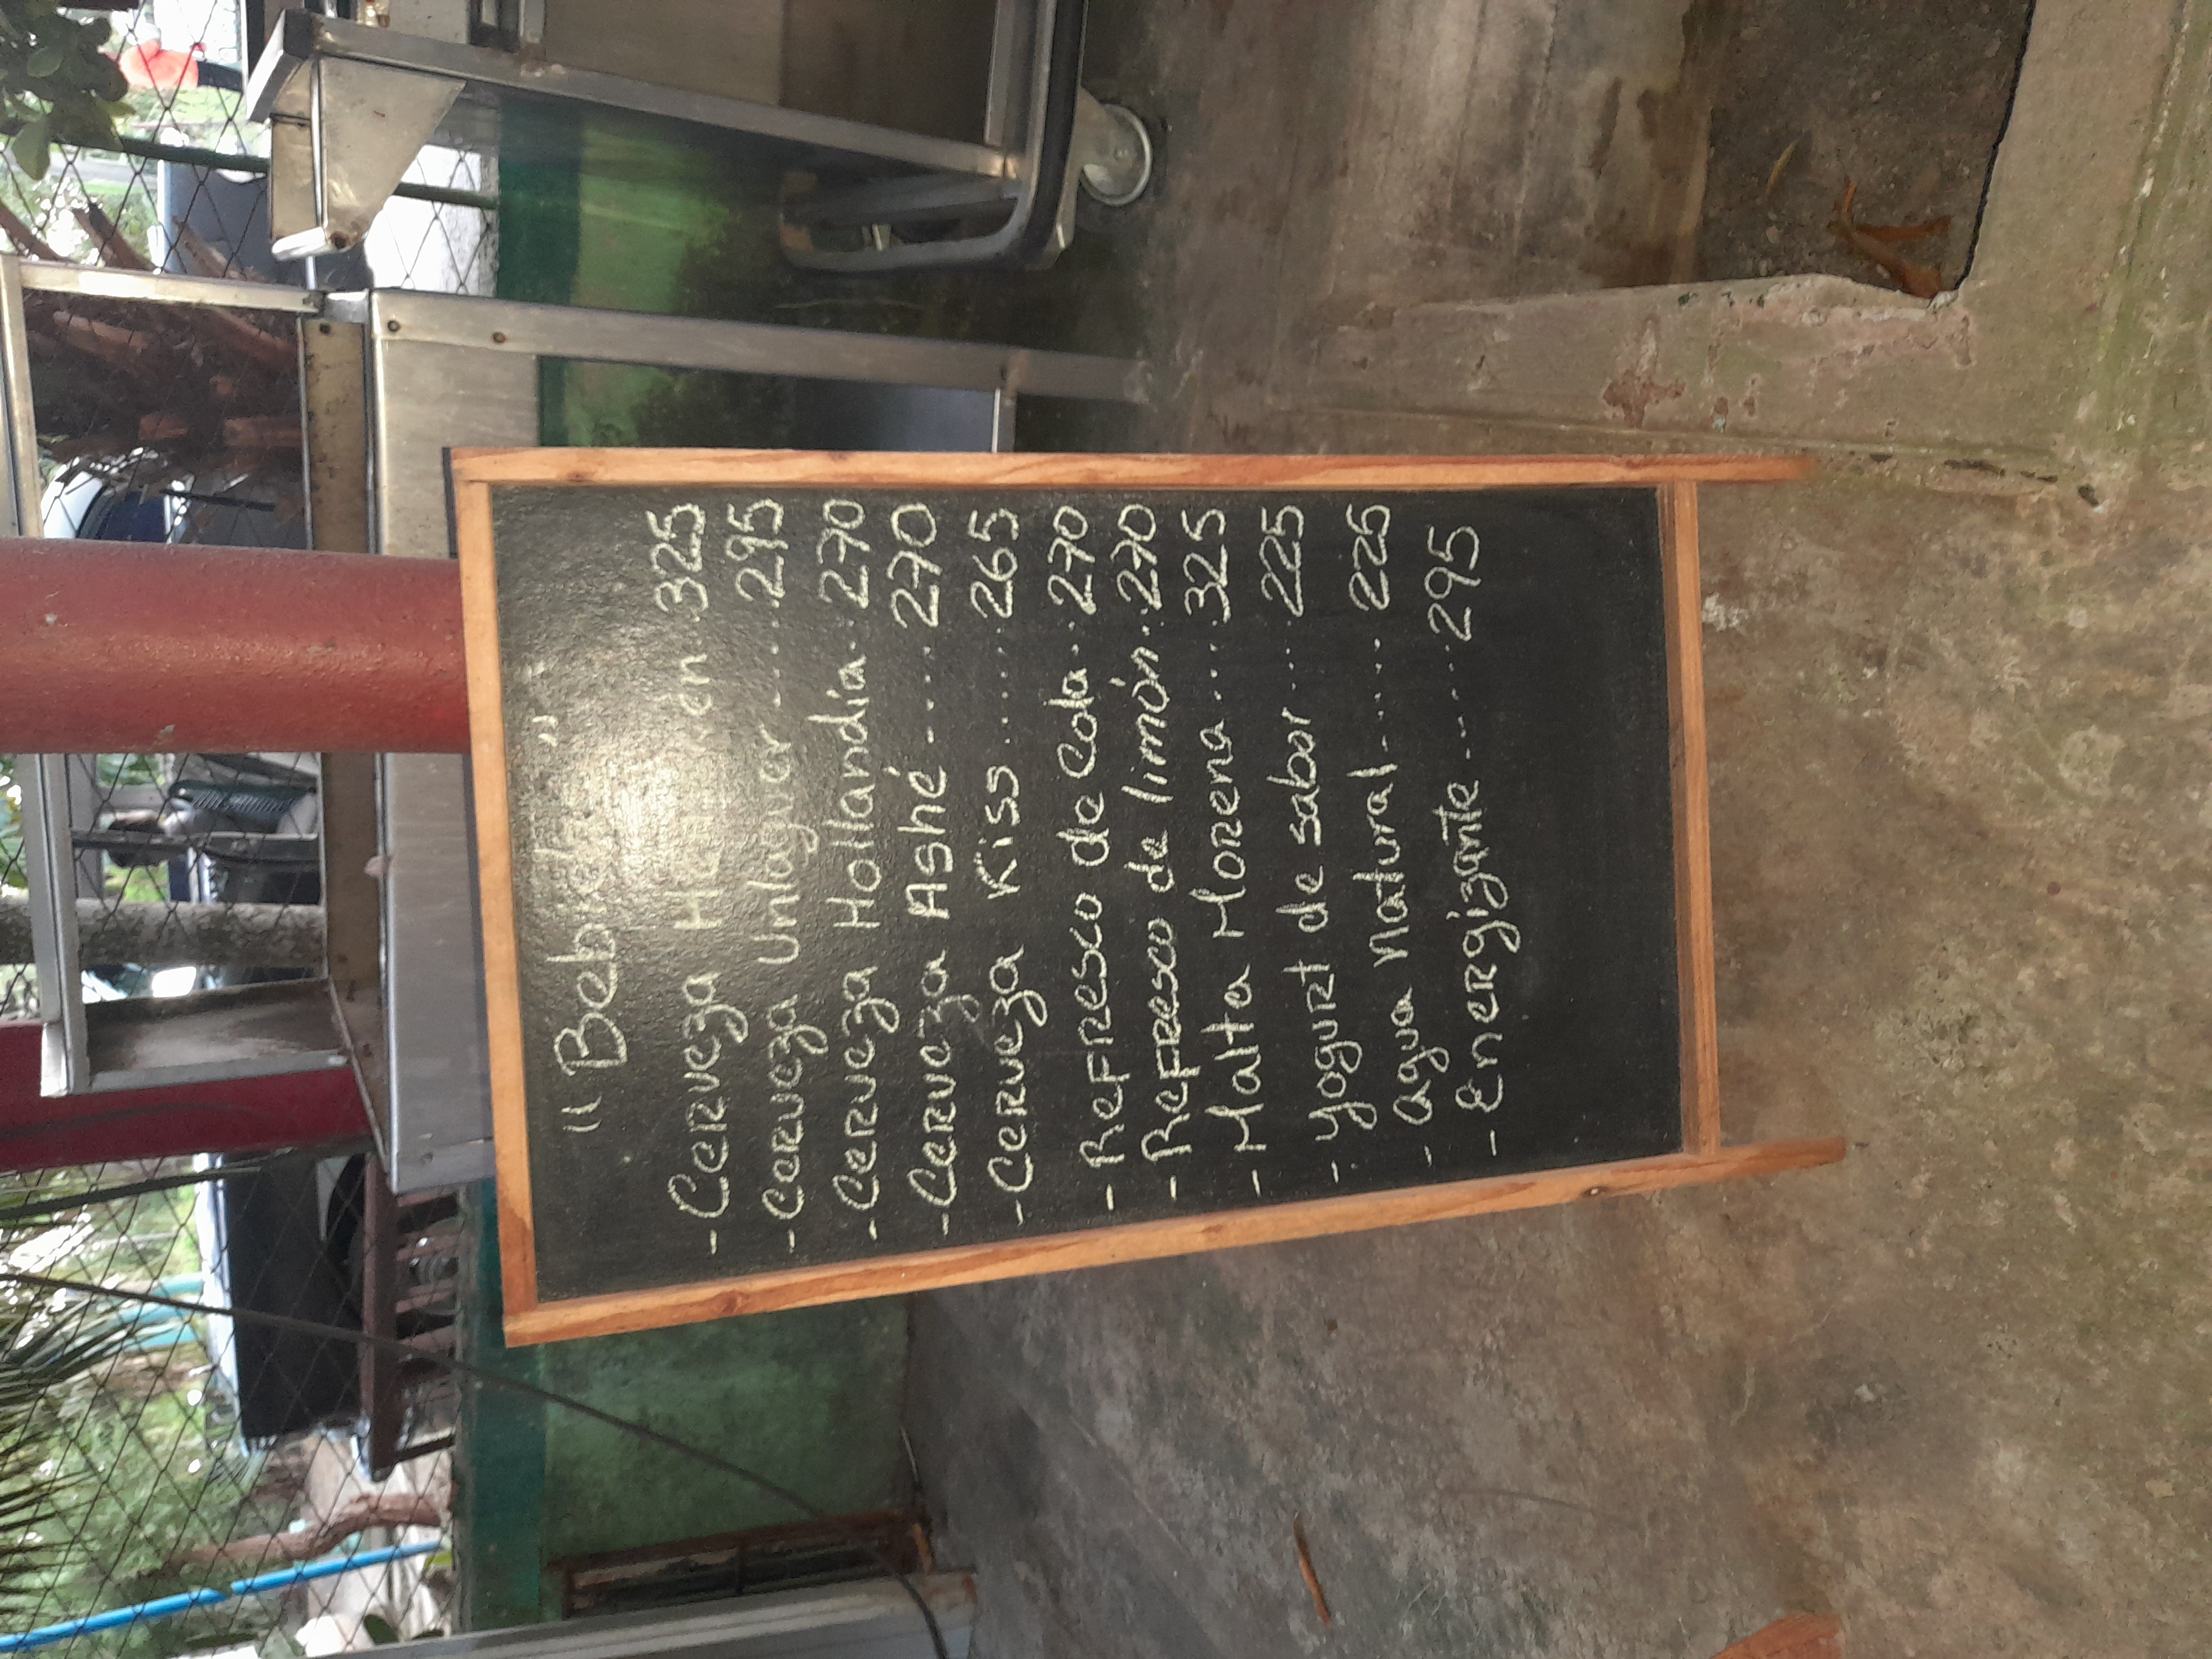 "Bebidas"
- Cerveza Heineken..325
- Cerveza Unlaguer.....295
- Cerveza Hollandia...270
- Cerveza Ashé.....270
- Cerveza Kiss......265
- Refresco de Cola...270
- Refresco de limón...270
- Malta Morena....325
- Yogurt de sabor....225
- Agua Natural......225
- Energizante.....295